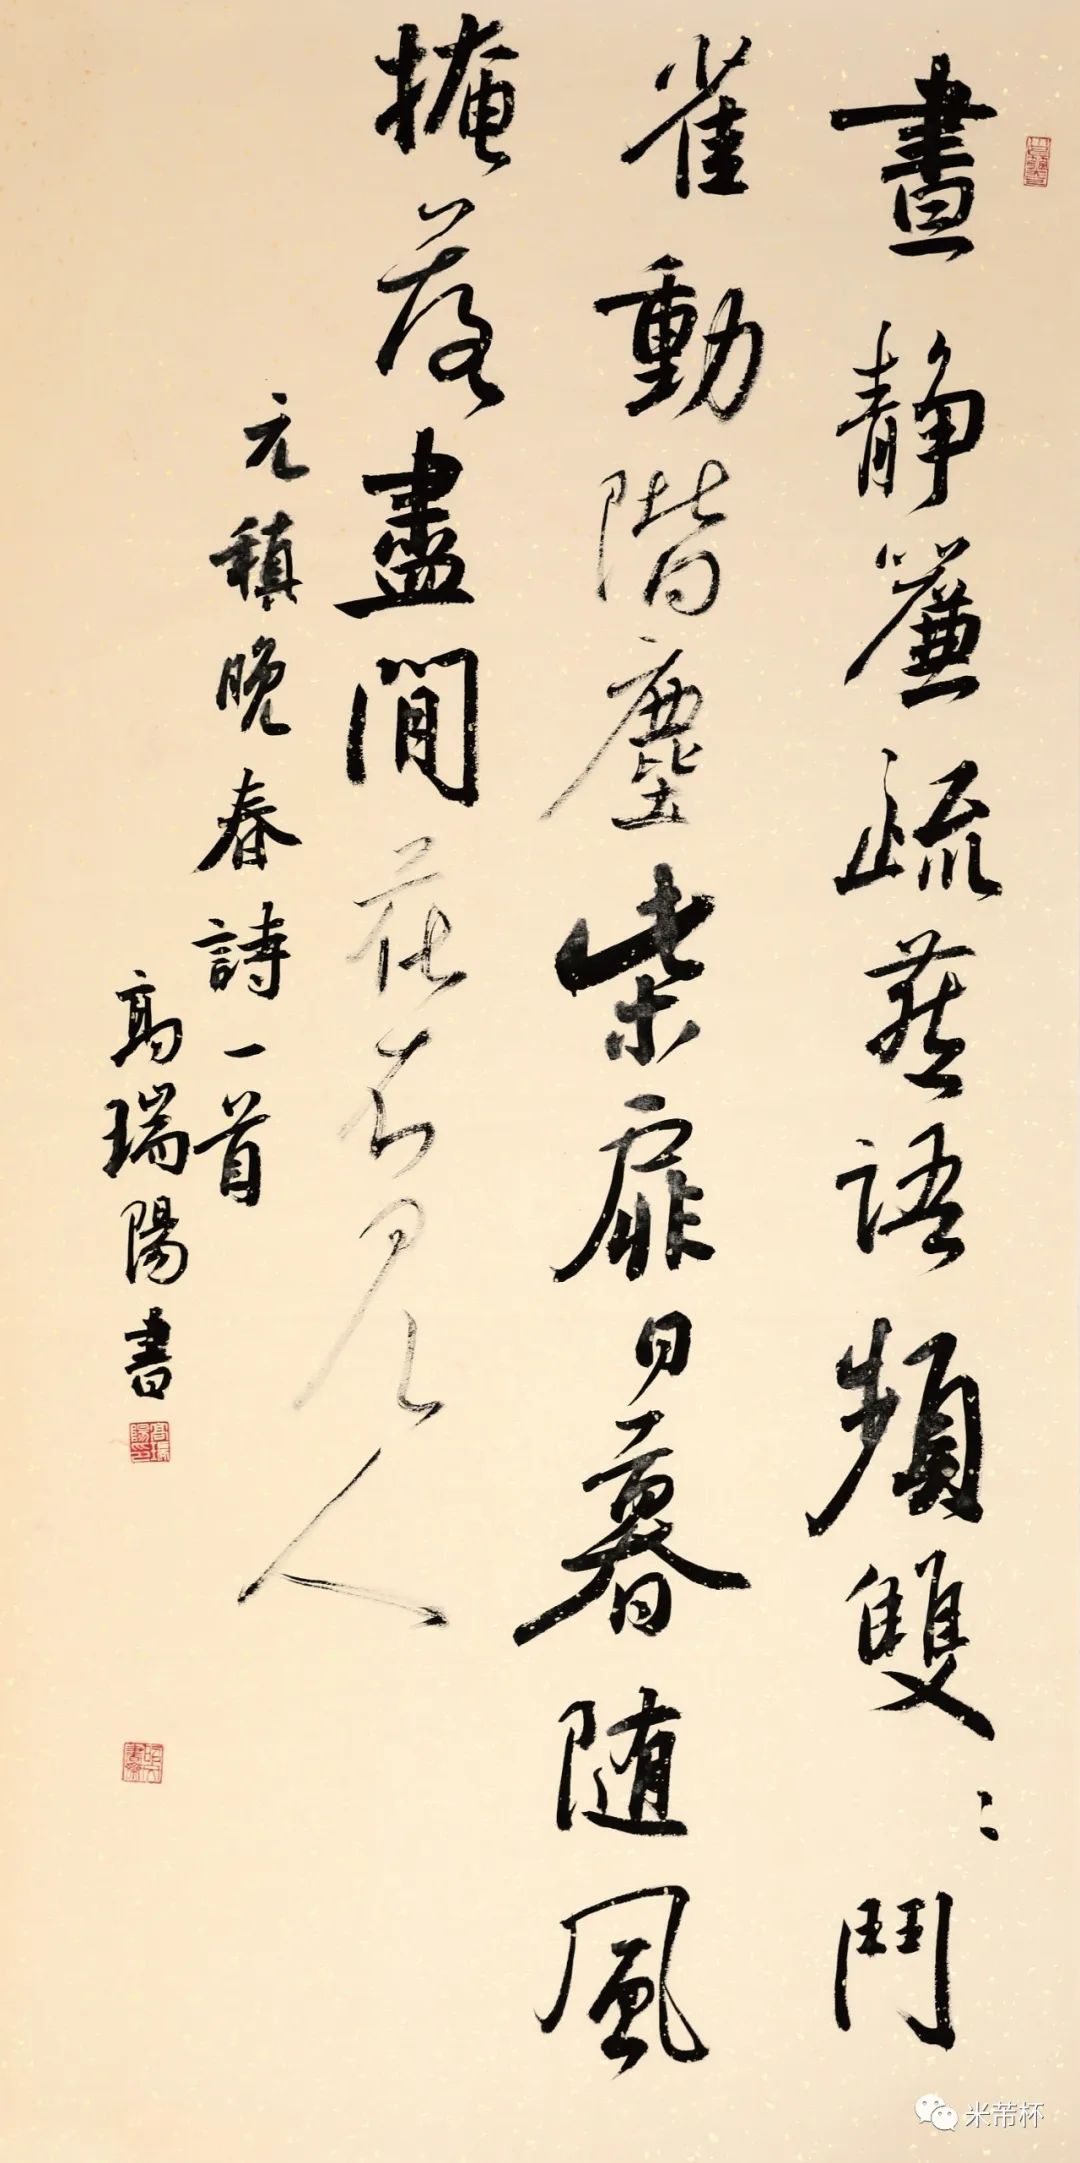 晝靜簾疏燕語頻雙〻鬥
雀動階塵柴扉日暮随風
掩落盡閒花不見人
元稹晚春詩一首
高瑞陽書
米芾杯